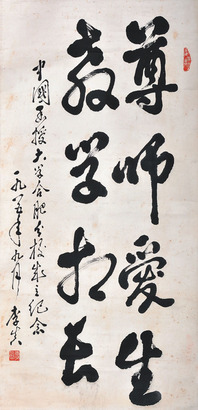 尊师爱生
教学相长
中國函授大学合肥分校成立纪念
一九八五年九月 李真